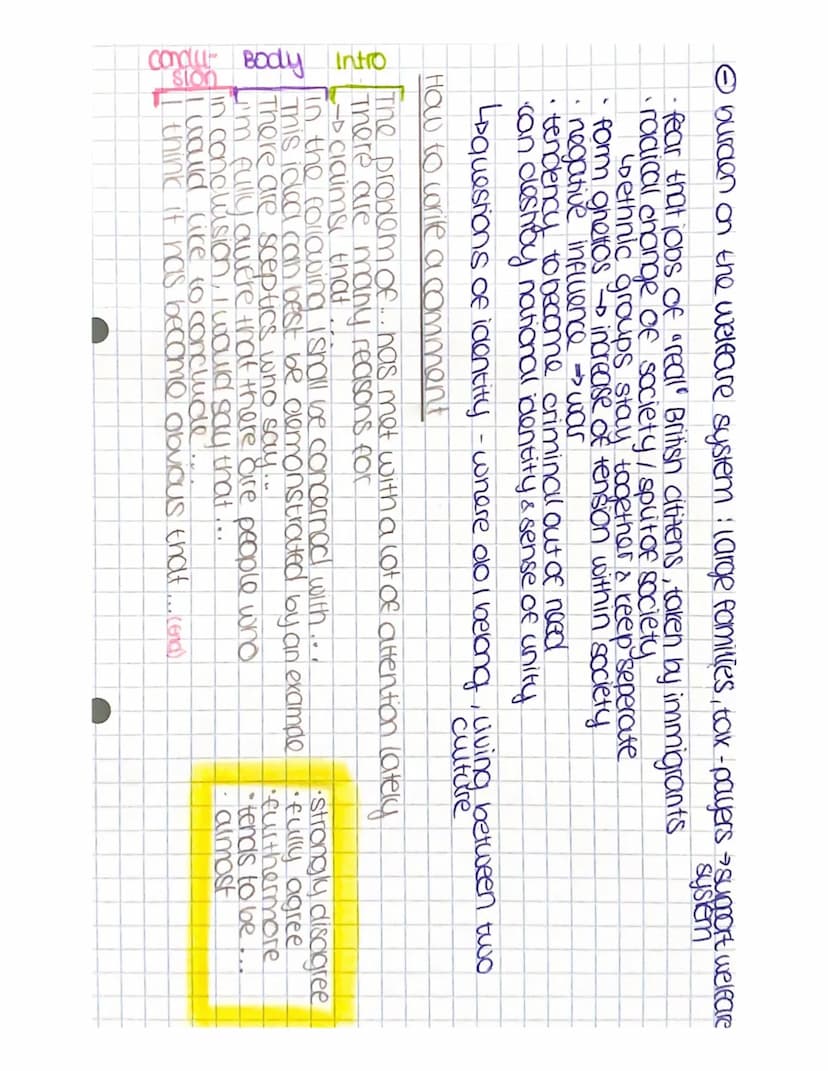 ⊖ burden on the welfare system : large families, tax-payers → support welfare
system
· fear that jobs of "real" British citizens, taken by immigrants
· radical change of society / split of society
↳ ethnic groups stay together & keep seperate
· form ghettos → increase of tension within society
· negative influence → war
· tendency to become criminal out of need
· can destroy national identity & sense of unity
↳ questions of identity - where do I belong, living between two
culture
How to write a comment
Intro
The problem of... has met with a lot of attention lately
There are many reasons for
↳ claims, that ...
Body
In the following I shall be concerned with ...
This idea can best be demonstrated by an example
There are sceptics who say...
I'm fully aware that there are people who
Conclu-
sion
In conclusion, I would say that...
I would like to conclude ...
I think it has become obvious that ... (End)
· strongly disagree
· fully agree
· furthermore
· tends to be ...
· almost